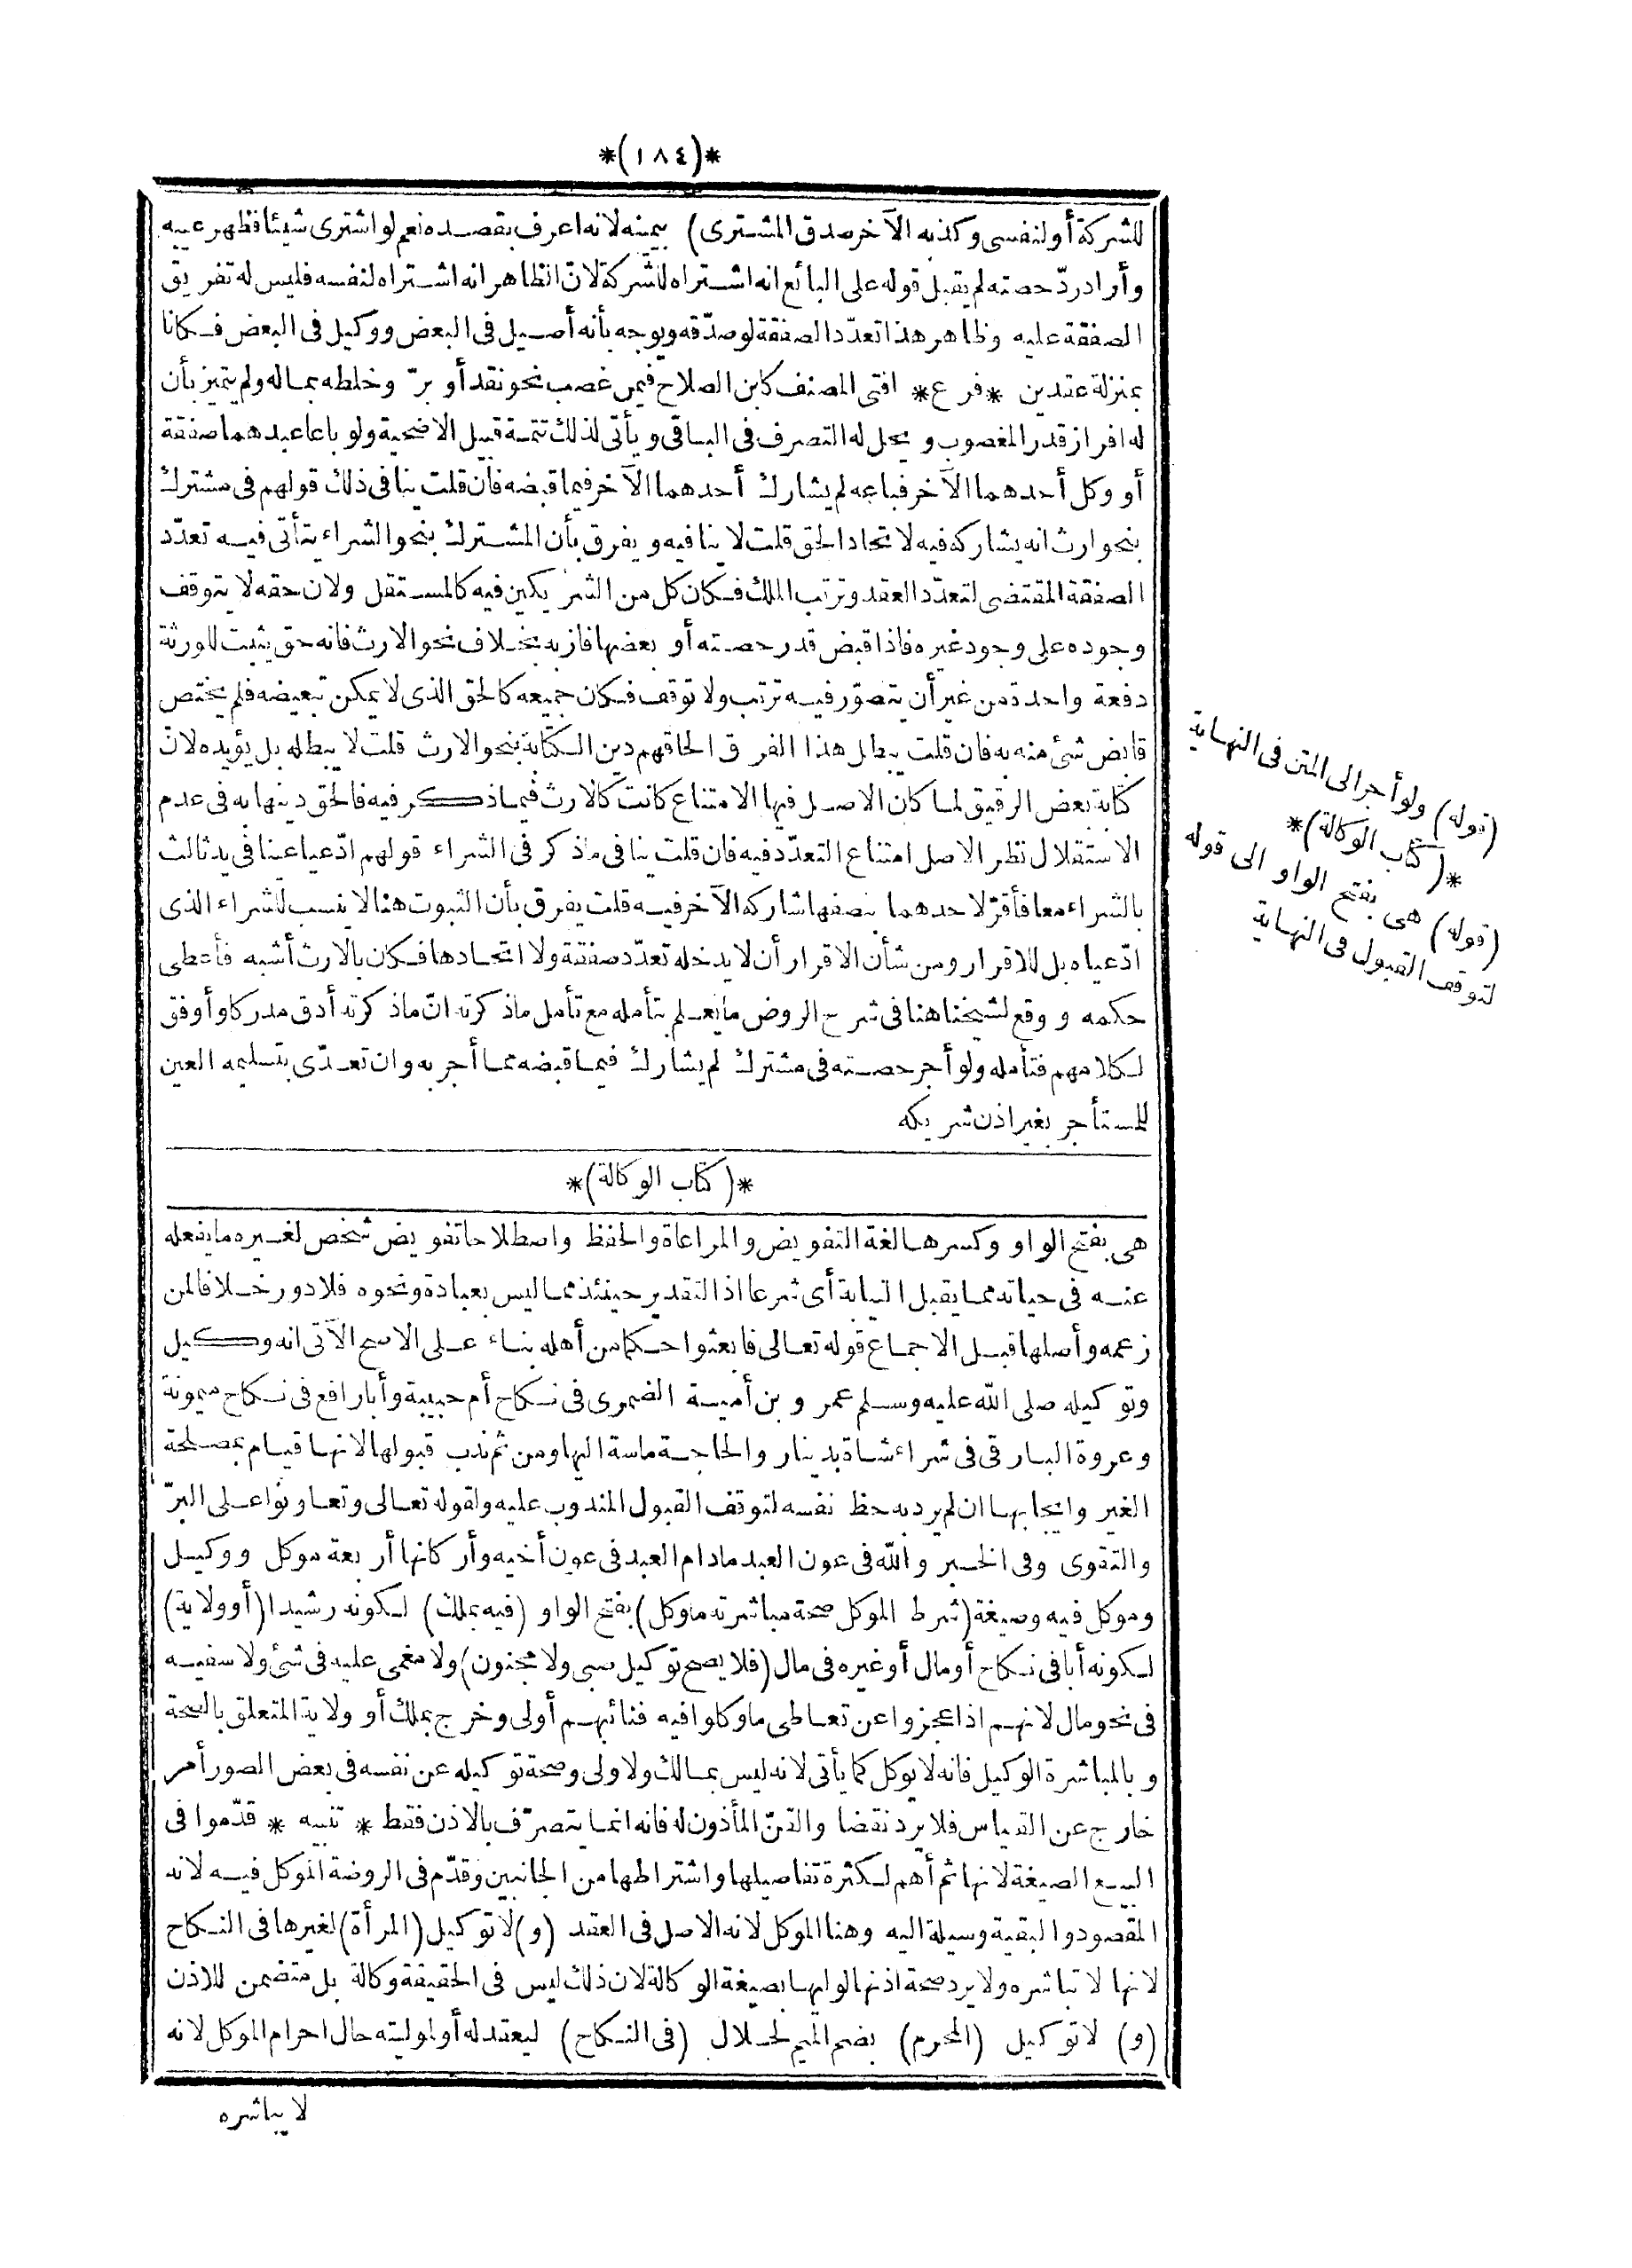 *(١٨٤)*
للشركة أو لنفسى وكذبه الآخر صدق المشترى) بيمينه لانه اعرف بقصده نعم لو اشترى شيئا فظهر عيبه
وأراد ردّ حصته لم يقبل قوله على البائع انه اشتراه للشركة لانّ الظاهر انه اشتراه لنفسه فليس له تفريق
الصفقة عليه وظاهر هذا تعدّد الصفقة لو صدّقه ويوجه بأنه أصيل فى البعض ووكيل فى البعض فكانا
بمنزلة عقدين *فرع* افتى المصنف كابن الصلاح فيمن غصب نحو نقد أو برّ وخلطه بماله ولم يتميز بأن
له افراز قدر المغصوب ويحل له التصرف فى الباقى ويأتى لذلك تتمة قبيل الاضحية ولو باعا عبدهما صفقة
أو وكل أحدهما الآخر فباعه لم يشارك أحدهما الآخر فيما قبضه فان قلت ينافى ذلك قولهم فى مشترك
بنحو ارث انه يشاركه فيه لاتحاد الحق قلت لا ينافيه ويفرق بأن المشترك بنحو الشراء يتأتى فيه تعدّد
الصفقة المقتضى لتعدّد العقد وترتب الملك فكان كل من الشريكين فيه كالمستقل ولان حقه لا يتوقف
وجوده على وجود غيره فاذا قبض قدر حصته أو بعضها فاز به بخلاف نحو الارث فانه حق يثبت للورثة
دفعة واحدة من غير أن يتصوّر فيه ترتب ولا توقف فكان جميعه كالحق الذى لا يمكن تبعيضه فلم يختص
قابض شئ منه به فان قلت يبطل هذا الفرق الحاقهم دين الكتابة بنحو الارث قلت لا يبطله بل يؤيده لانّ
كتابة بعض الرقيق لما كان الاصل فيها الامتناع كانت كالارث فيما ذكر فيه فالحق دينها به فى عدم
الاستقلال نظر الاصل امتناع التعدّد فيه فان قلت ينافى ماذكر فى الشراء قولهم ادّعيا عينا فى يد ثالث
بالشراء معا فأقرّ لاحدهما بنصفها شاركه الآخر فيه قلت يفرق بأن الثبوت هنا لا ينسب للشراء الذى
ادّعياه بل للاقرار ومن شأن الاقرار أن لا يدخله تعدّد صفقة ولا اتحادها فكان بالارث أشبه فأعطى
حكمه ووقع لشيخنا هنا فى شرح الروض ما يعلم بتأمله مع تأمل ماذكرته انّ ماذكرته أدق مدركا وأوفق
لكلامهم فتأمله ولو أجر حصته فى مشترك لم يشارك فيما قبضه مما أجر به وان تعدّى بتسليمه العين
للمستأجر بغير اذن شريكه
*(كتاب الوكالة)*
هى بفتح الواو وكسرها لغة التفويض والمراعاة والحفظ واصطلاحا تفويض شخص لغيره ما يفعله
عنه فى حياته مما يقبل النيابة أى شرعا اذ التقدير حينئذ مما ليس بعبادة ونحوه فلا دور خلافا لمن
زعمه وأصلها قبل الاجماع قوله تعالى فابعثوا حكما من أهله بناء على الاصح الآتى انه وكيل
وتوكيله صلى الله عليه وسلم عمرو بن أمية الضمرى فى نكاح أم حبيبة وأبا رافع فى نكاح ميمونة
وعروة البارقى فى شراء شاة بدينار والحاجة ماسة اليها ومن ثم ندب قبولها لانها قيام بمصلحة
الغير وايجابها ان لم يرد به حظ نفسه لتوقف القبول المندوب عليه ولقوله تعالى وتعاونوا على البرّ
والتقوى وفى الخبر والله فى عون العبد مادام العبد فى عون أخيه وأركانها أربعة موكل ووكيل
وموكل فيه وصيغة (شرط الموكل صحة مباشرته ما وكل) بفتح الواو (فيه بملك) لكونه رشيدا (أو ولاية)
لكونه أبا فى نكاح أو مال أو غيره فى مال (فلا يصح توكيل صبى ولا مجنون) ولا مغمى عليه فى شئ ولا سفيه
فى نحو مال لانهم اذا عجزوا عن تعاطى ما وكلوا فيه فنائبهم أولى وخرج بملك أو ولاية المتعلق بالصحة
وبالمباشرة الوكيل فانه لا يوكل كما يأتى لانه ليس بمالك ولا ولى وصحة توكيله عن نفسه فى بعض الصور أمر
خارج عن القياس فلا يرد نقضا والقنّ المأذون له فانه انما يتصرّف بالاذن فقط * تنبيه * قدّموا فى
البيع الصيغة لانها ثم أهم لكثرة تفاصيلها واشتراطها من الجانبين وقدّم فى الروضة الموكل فيه لانه
المقصود والبقية وسيلة اليه وهنا الموكل لانه الاصل فى العقد (و) لا توكيل (المرأة) لغيرها فى النكاح
لانها لا تباشره ولا يرد صحة اذنها لوليها بصيغة الوكالة لان ذلك ليس فى الحقيقة وكالة بل متضمن للاذن
(و) لا توكيل (المحرم) بضم الميم لحلال (فى النكاح) ليعقد له أو لموليته حال احرام الموكل لانه
لا يباشره
(قوله) ولو أجر الى المتن فى النهاية
*(كتاب الوكالة)*
(قوله) هى بفتح الواو الى قوله
لتوقف القبول فى النهاية